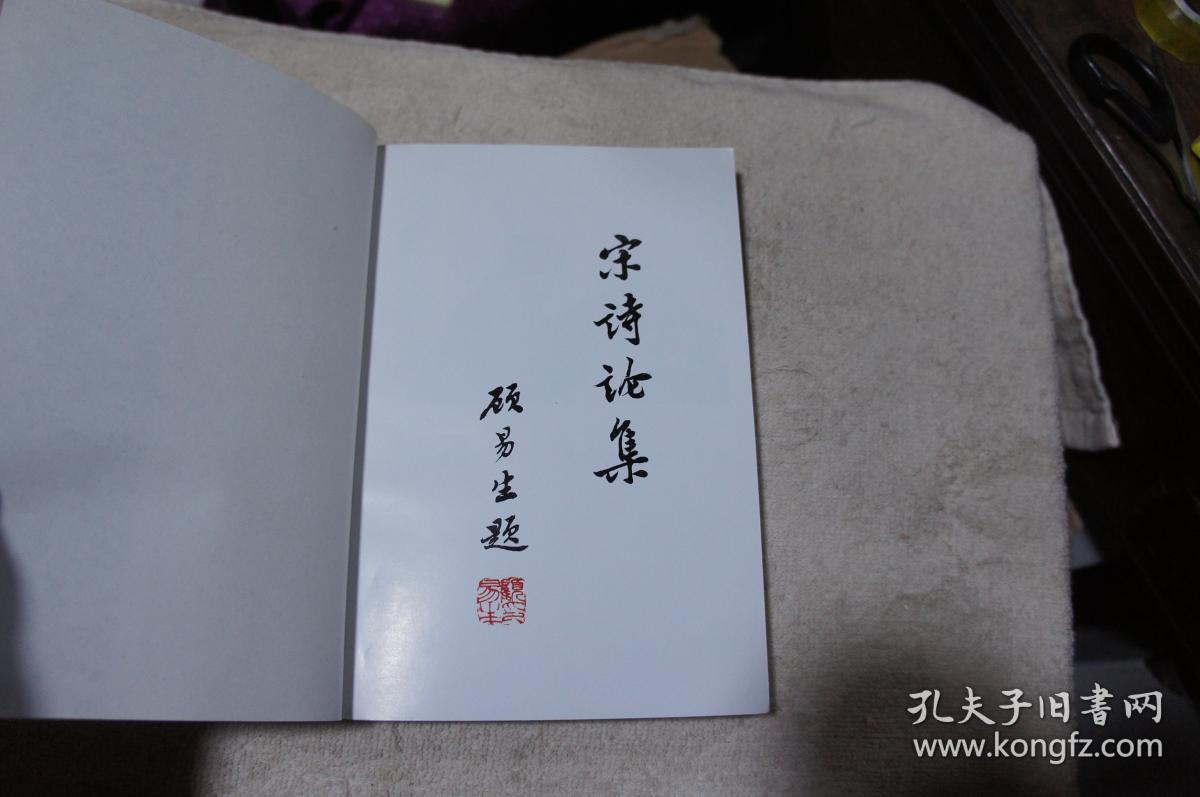 宋詩论集
顾易生题
顧易生印
孔夫子旧書网
www.kongfz.com